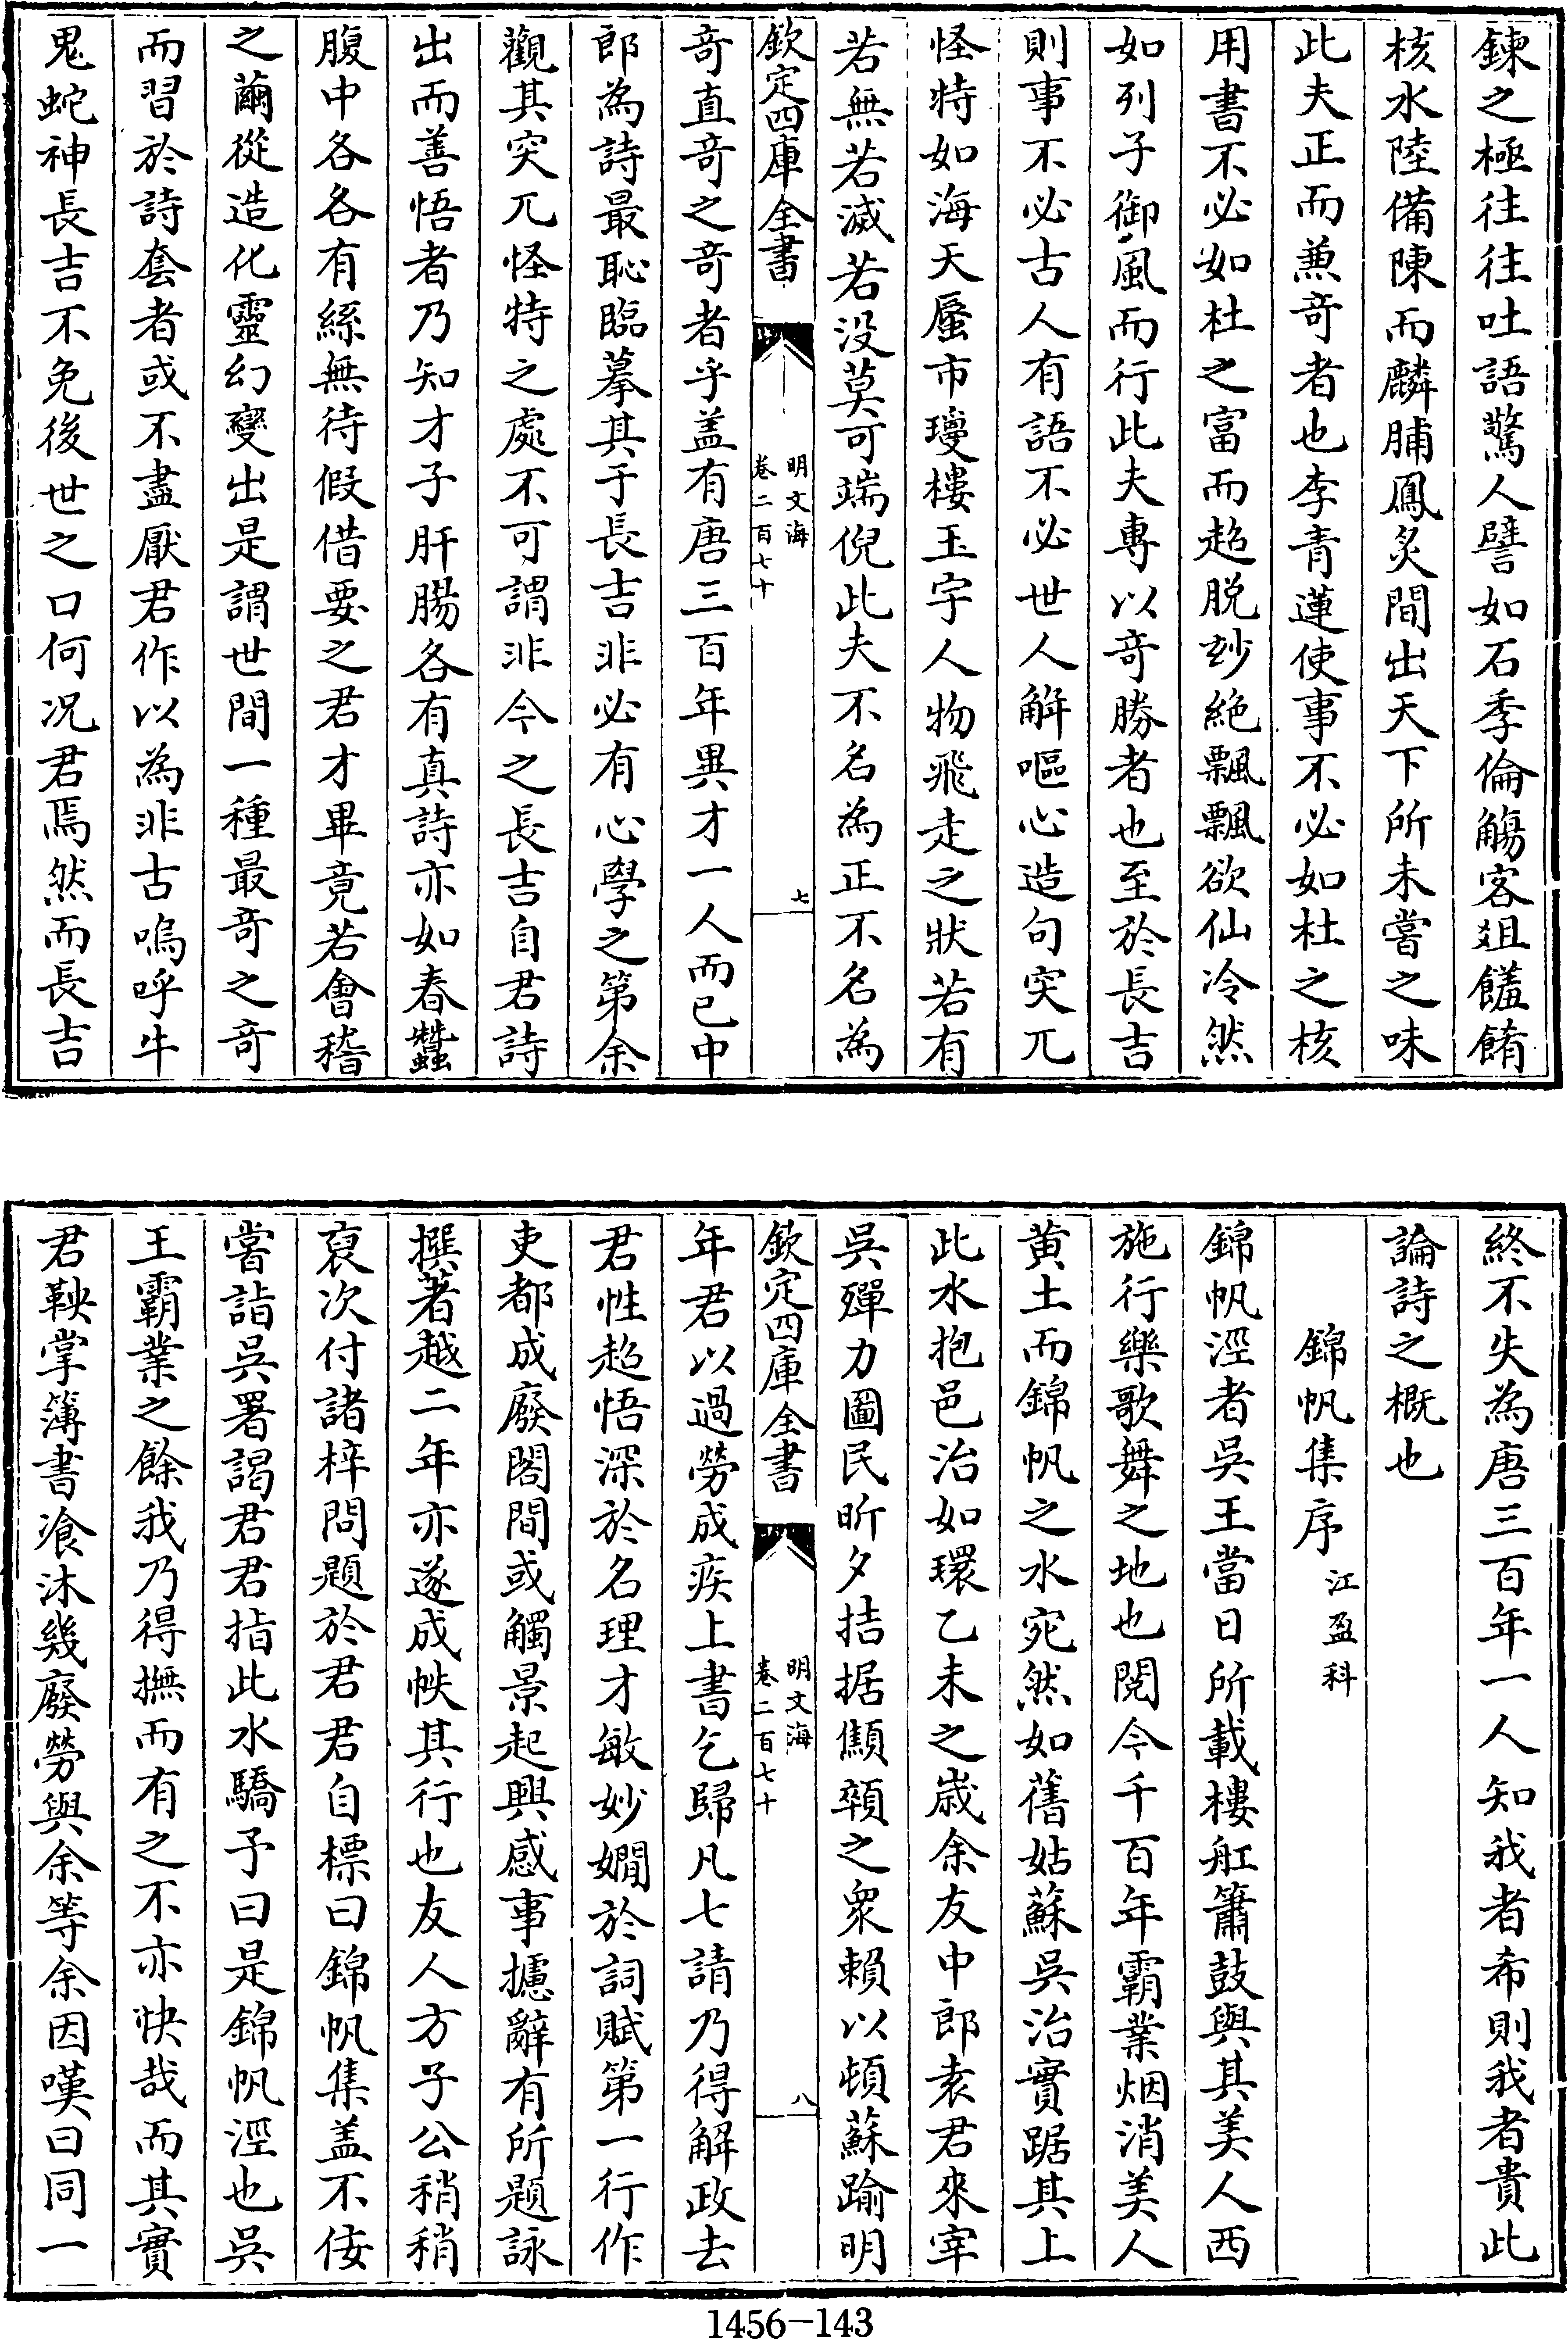 鍊之極徃徃吐語驚人譬如石季倫觴客爼饈餚
核水陸備陳而麟脯鳳炙間出天下所未嘗之味
此夫正而兼奇者也李青蓮使事不必如杜之核
用書不必如杜之富而超脱玅絶飄飄欲仙冷然
如列子御風而行此夫專以奇勝者也至於長吉
則事不必古人有語不必世人解嘔心造句突兀
怪特如海天蜃市璦樓玉宇人物飛走之狀若有
若無若滅若没莫可端倪此夫不名為正不名為
欽定四庫全書
明文海
卷二百七十
七
奇直奇之奇者乎盖有唐三百年異才一人而已中
郎為詩最恥臨摹其于長吉非必有心學之第余
觀其突兀怪特之處不可謂非今之長吉自君詩
出而善悟者乃知才子肝腸各有真詩亦如春蠶
腹中各各有絲無待假借要之君才畢竟若會稽
之繭從造化靈幻變出是謂世間一種最奇之奇
而習於詩套者或不盡厭君作以為非古嗚呼牛
鬼蛇神長吉不免後世之口何况君焉然而長吉
終不失為唐三百年一人知我者希則我者貴此
論詩之概也
錦帆集序
江盈科
錦帆涇者吳王當日所載樓舡簫鼓與其美人西
施行樂歌舞之地也閱今千百年霸業烟消美人
黄土而錦帆之水宛然如舊姑蘇吳治實踞其上
此水抱邑治如環乙未之歲余友中郎袁君來宰
吳殫力圖民昕夕拮据顦顇之衆賴以頓蘇踰明
欽定四庫全書
明文海
卷二百七十
八
年君以過勞成疾上書乞歸凡七請乃得解政去
君性超悟深於名理才敏妙嫺於詞賦第一行作
吏都成廢閣間或觸景起興感事攄辭有所題詠
撰著越二年亦遂成帙其行也友人方子公稍稍
裒次付諸梓問題於君君自標曰錦帆集盖不佞
嘗詣吳署謁君君指此水驕予曰是錦帆涇也吳
王霸業之餘我乃得撫而有之不亦快哉而其實
君鞅掌簿書飡沐幾廢勞與余等余因嘆曰同一
1456-143